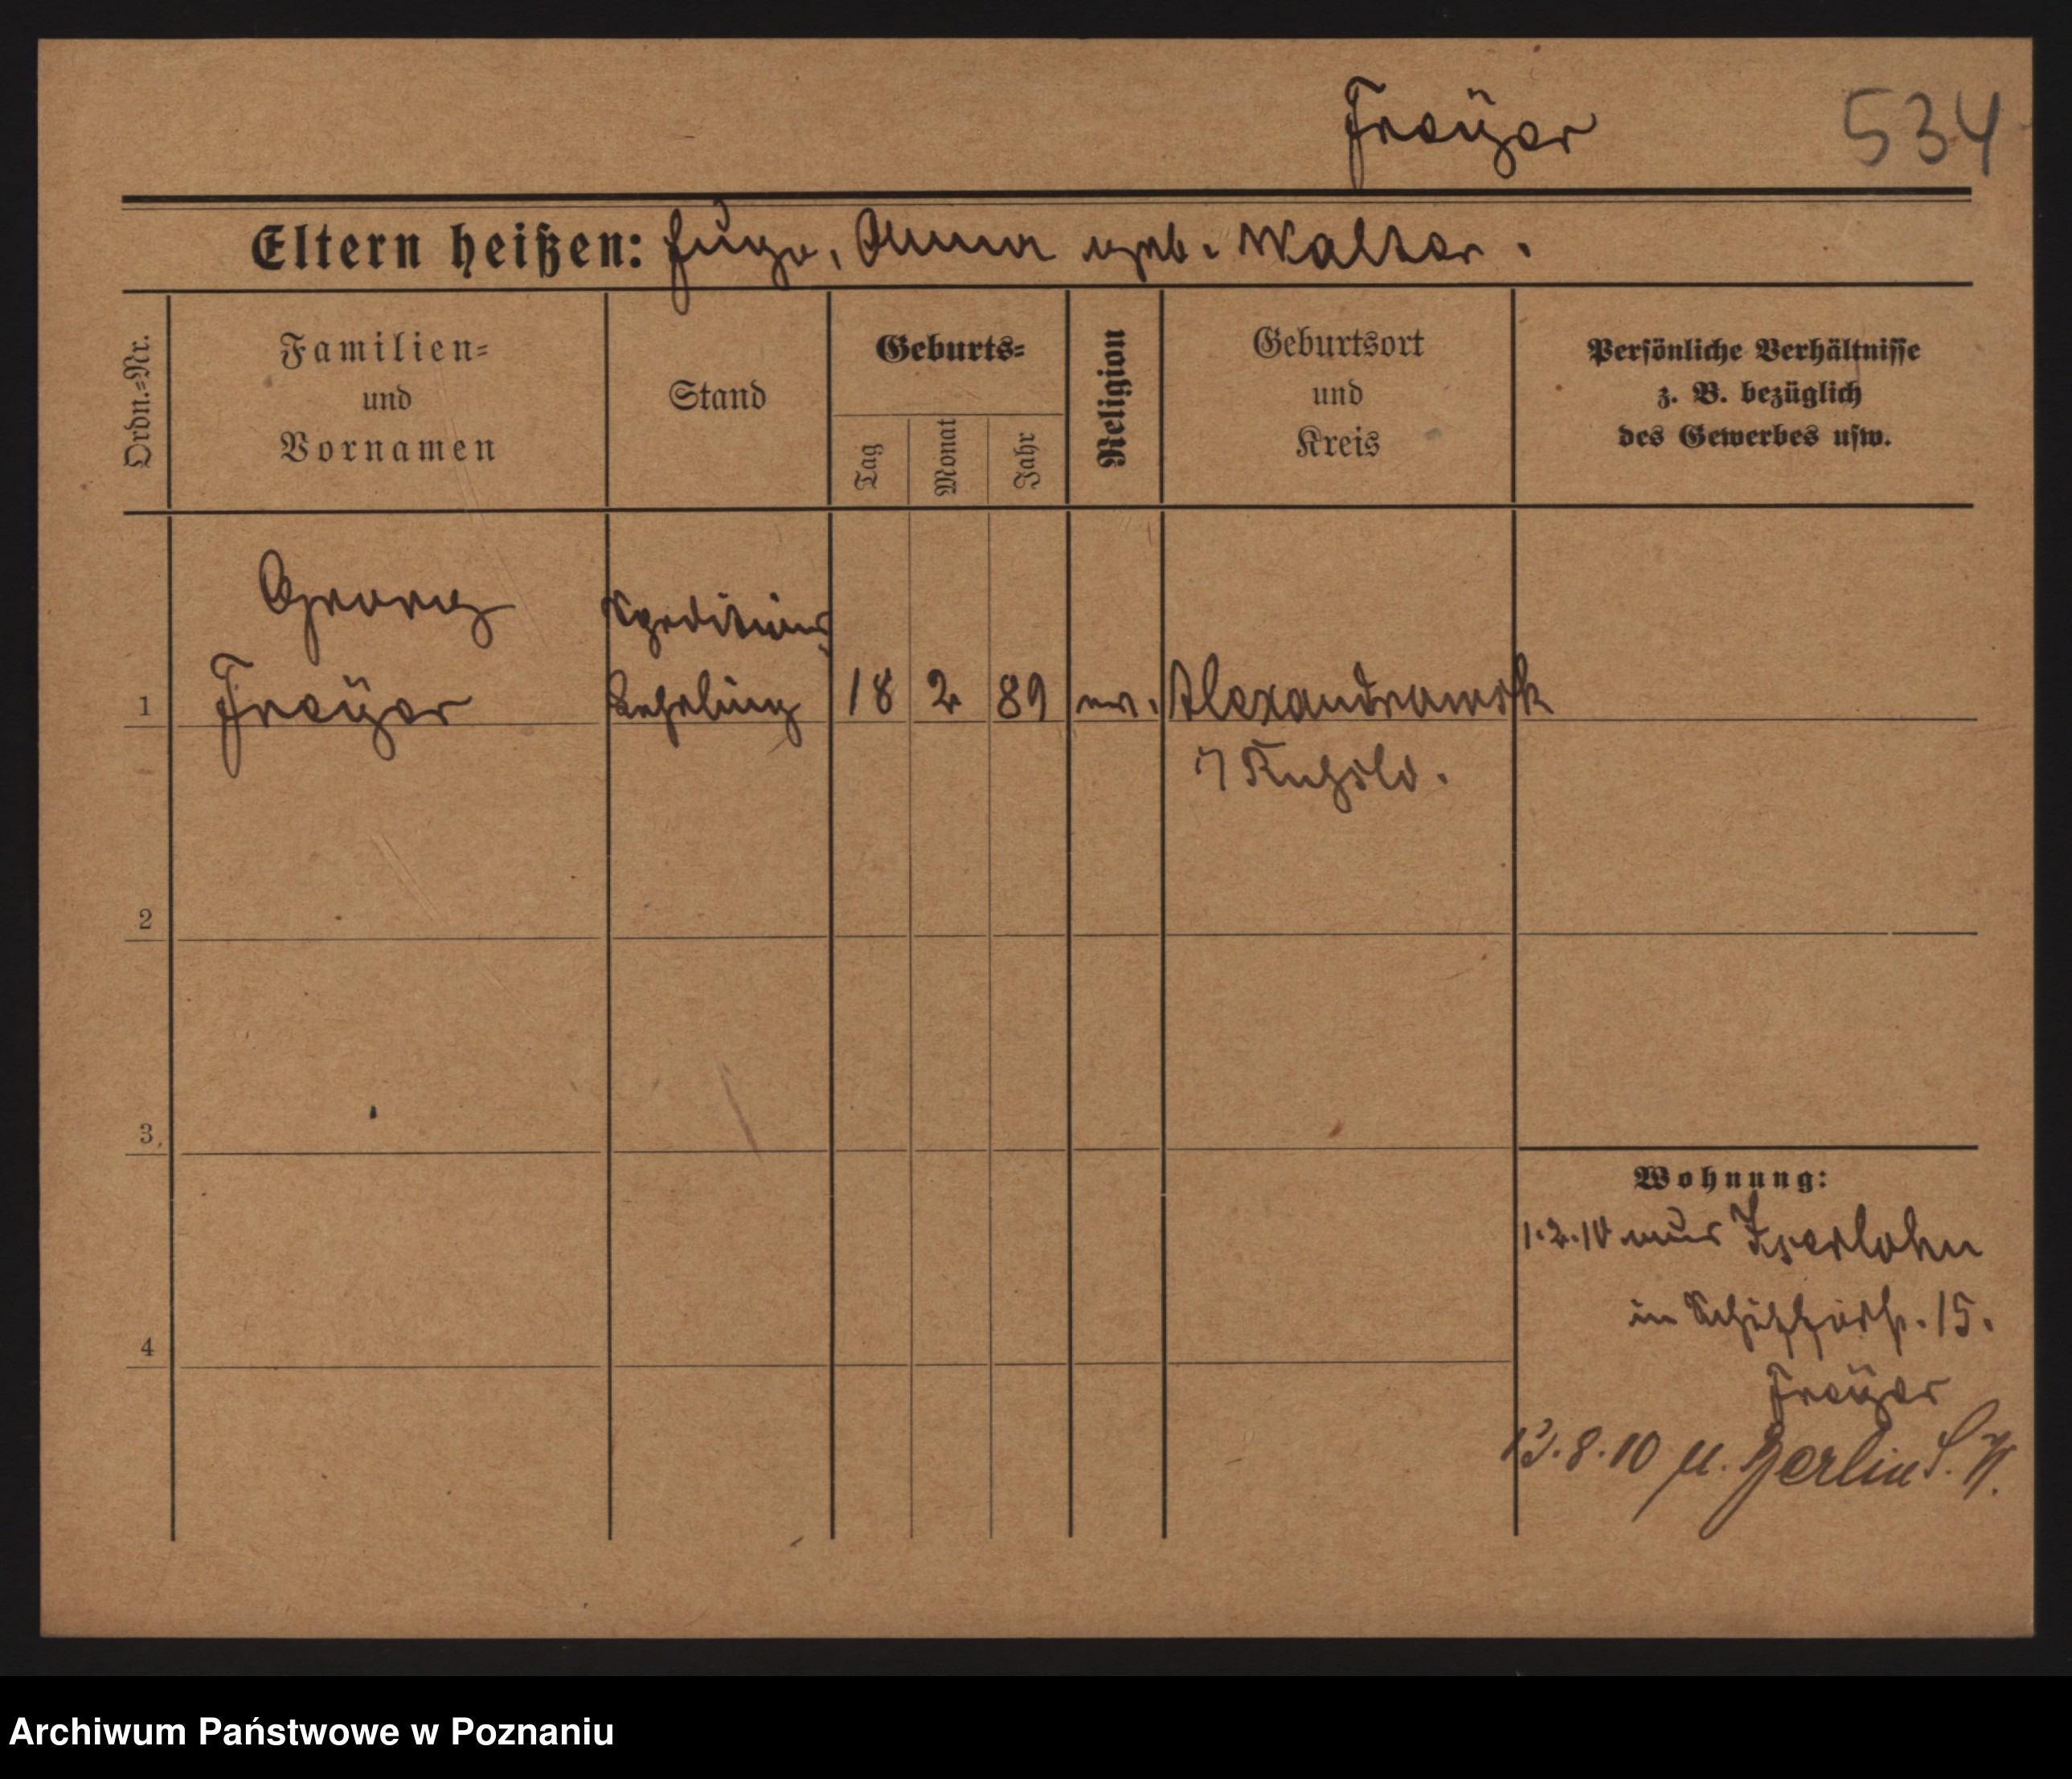 Freÿer 534
Eltern heißen: Hugo, Anna geb. Walter.
Ordn.=Nr.
Familien=
und
Vornamen
Stand
Geburts=
Tag
Monat
Jahr
Religion
Geburtsort
und
Kreis
Persönliche Verhältnisse
z. B. bezüglich
des Gewerbes usw.
Georg
Speditions
1 Freÿer Lehrling 18 2 89 ev. Alexandrowsk
i/ Rußld.
2
3
Wohnung:
1.2.10 aus Iserlohn
in 15.
4
Freÿer
13.8.10 n. Berlin S. W.
Archiwum Państwowe w Poznaniu